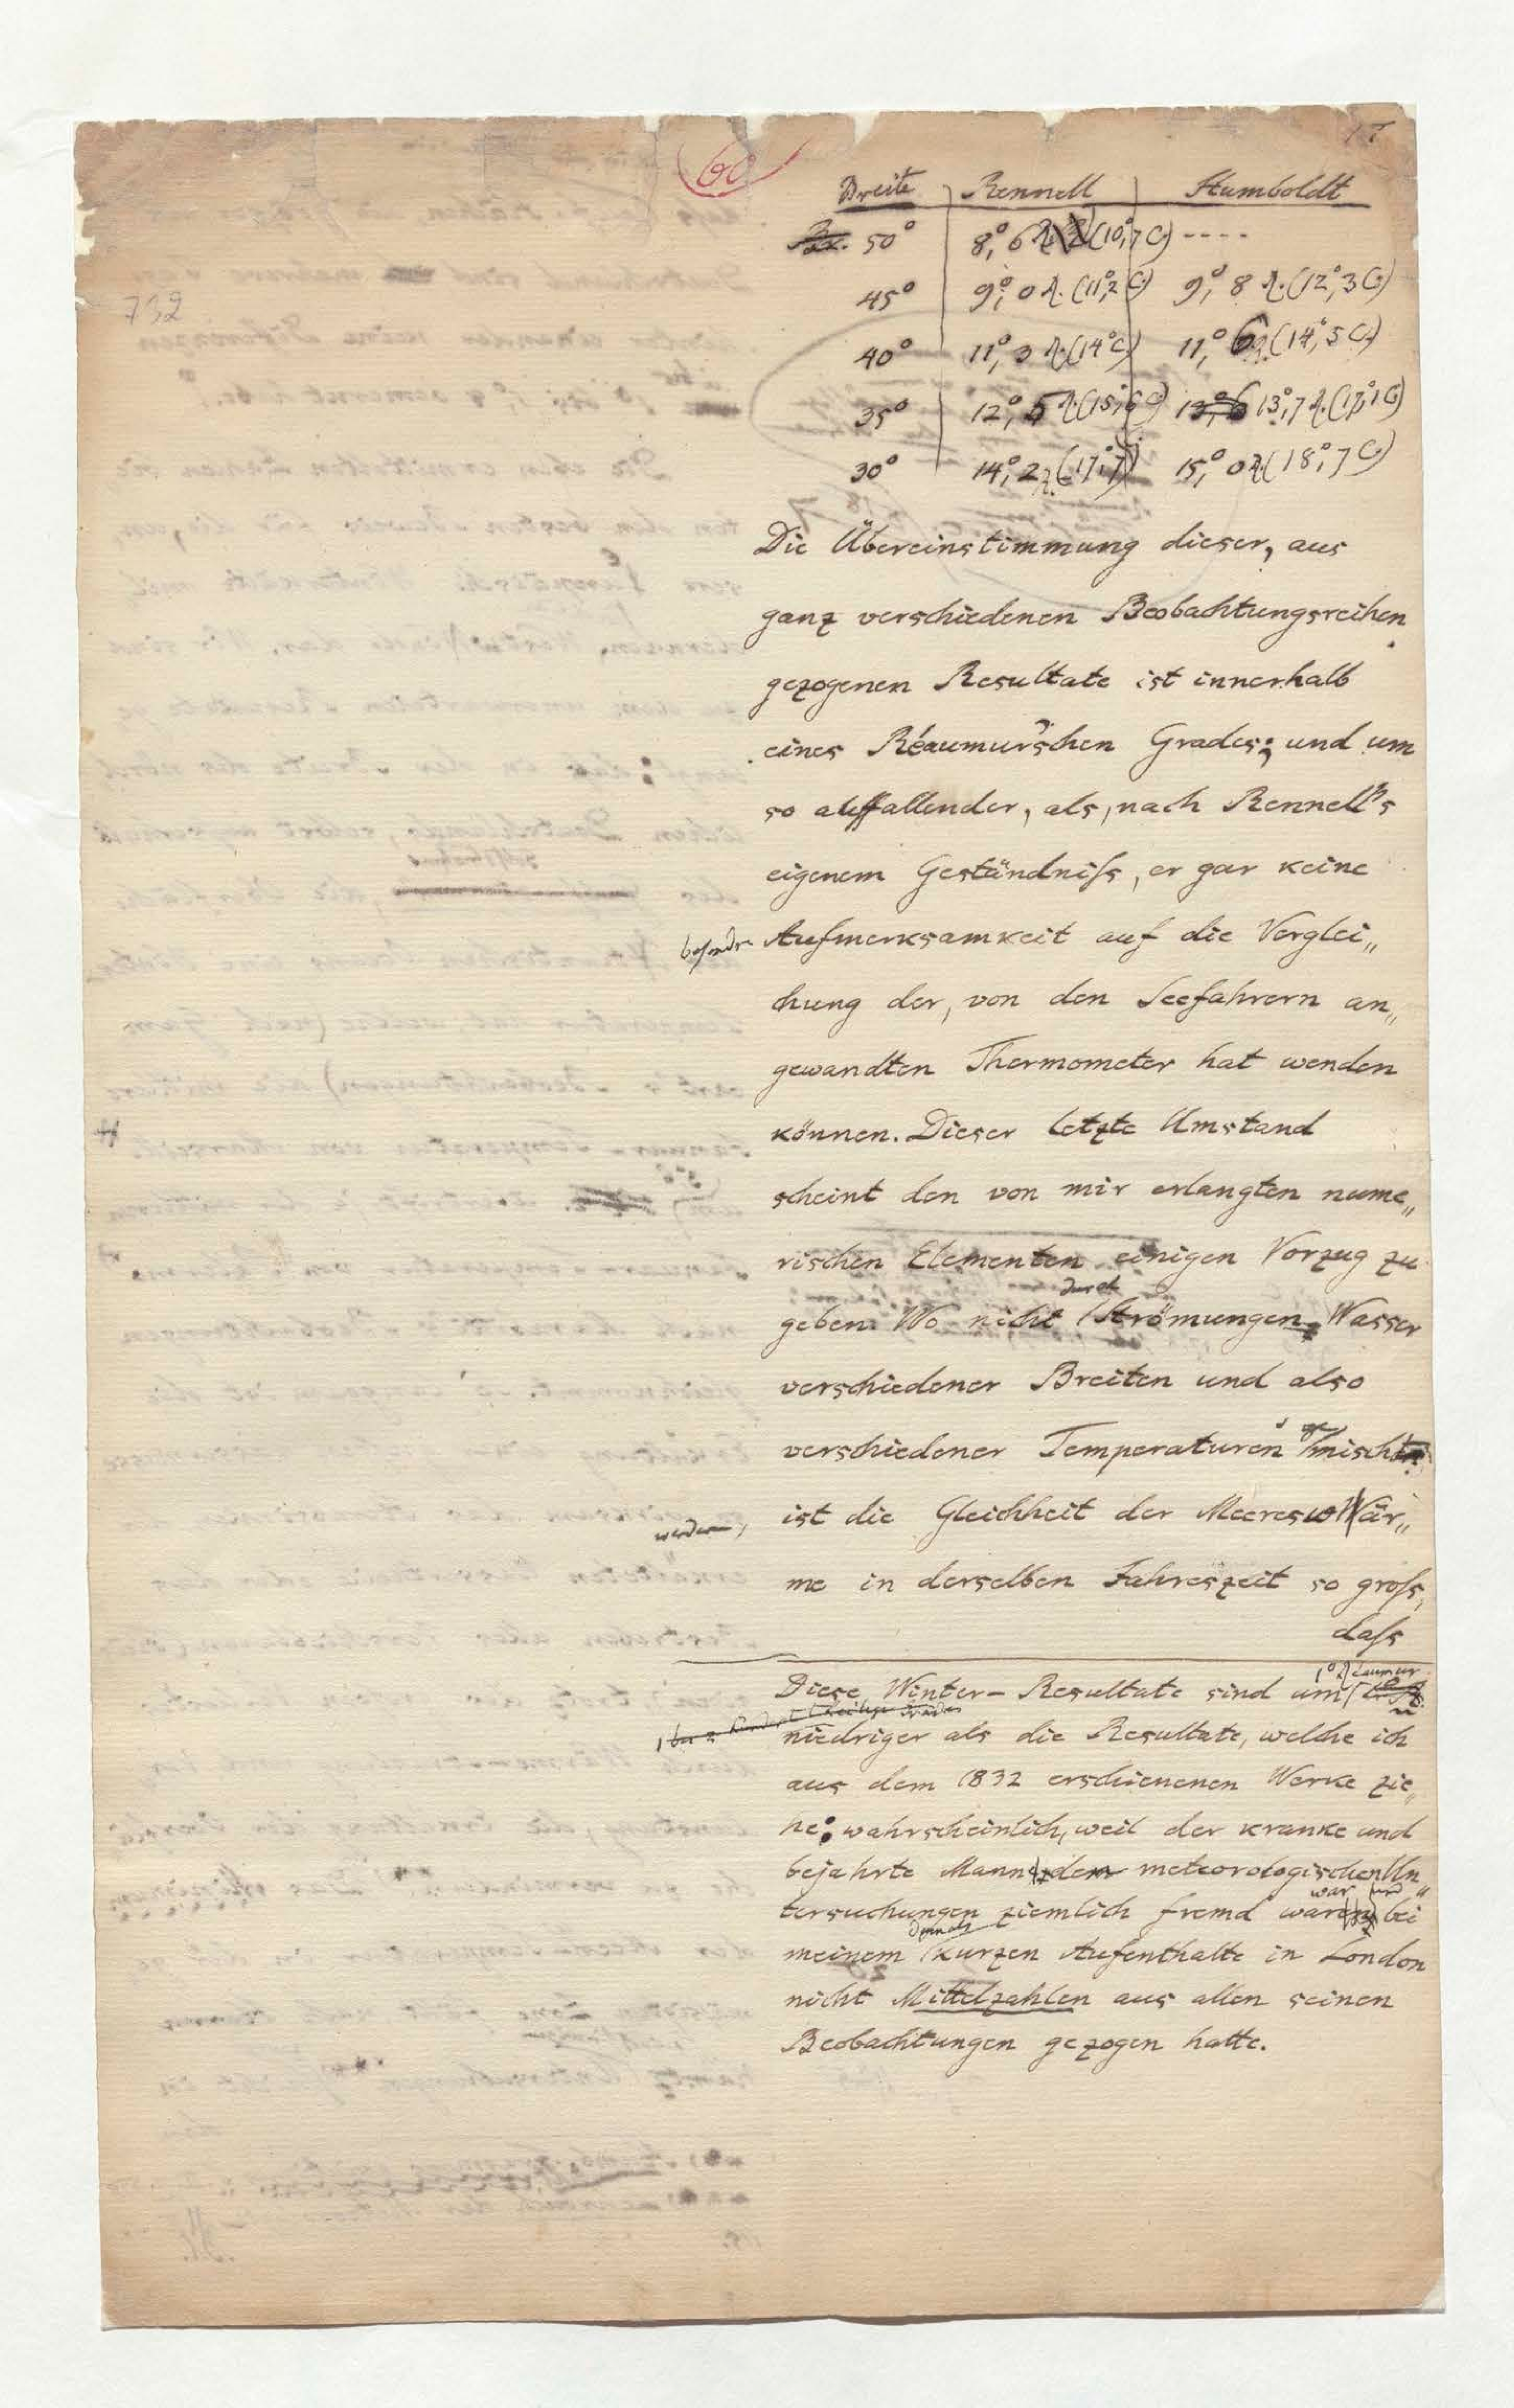 60
732
Breite Rennell Humboldt
50° 8,°6 R. (10,°7 C.) ----
45° 9,°0 R. (11,°2 C.) 9,°8 R. (12,°3 C.)
40° 11,°3 R. (14° C.) 11,°6 R. (14,°5 C.)
35° 12,°5 R. (15,°6 C.) 13,°7 R. (17,°1 C.)
30° 14,°2 R. (17,°7) 15,°0 R. (18,°7 C.)
Die Übereinstimmung dieser, aus
ganz verschiedenen Beobachtungsreihen
gezogenen Resultate ist innerhalb
eines Réaumur'schen Grades; und um
so auffallender, als, nach Rennell's
eigenem Geständniſs, er gar keine
besondre Aufmerksamkeit auf die Verglei„
chung der, von den Seefahrern an„
gewandten Thermometer hat wenden
können. Dieser letzte Umstand
scheint den von mir erlangten nume„
rischen Elementen einigen Vorzug zu
geben. Wo nicht durch Strömungen Wasser
verschiedener Breiten und also
verschiedener Temperaturen gemischt
werden, ist die Gleichheit der Meereswär„
me in derselben Jahreszeit so groſs,
daſs
Diese Winter-Resultate sind um 1° Réaumur
niedriger als die Resultate, welche ich
aus dem 1832 erschienenen Werke zie„
he: wahrscheinlich, weil der kranke und
bejahrte Mann dem meteorologischen Un„
tersuchungen ziemlich fremd waren war und bei
meinem damals kurzen Aufenthalte in London
nicht Mittelzahlen aus allen seinen
Beobachtungen gezogen hatte.